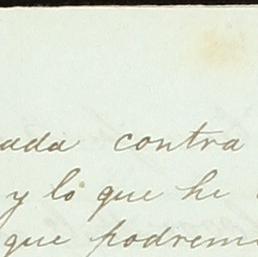 ada contra
y lo que he
que podrem